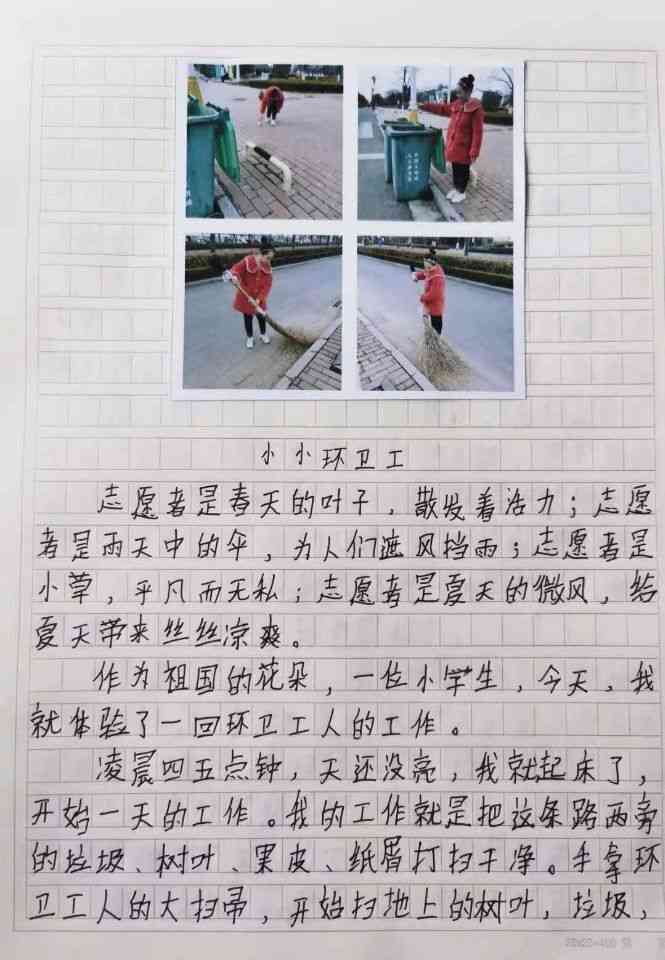 小小环卫工
志愿者是春天的叶子，散发着活力；志愿
者是雨天中的伞，为人们遮风挡雨；志愿者是
小草，平凡而无私；志愿者是夏天的微风，给
夏天带来丝丝凉爽。
作为祖国的花朵，一位小学生，今天，我
就体验了一回环卫工人的工作。
凌晨四五点钟，天还没亮，我就起床了，
开始一天的工作。我的工作就是把这条路两旁
的垃圾、树叶、果皮、纸屑打扫干净。手拿环
卫工人的大扫帚，开始扫地上的树叶，垃圾，
20×20=400